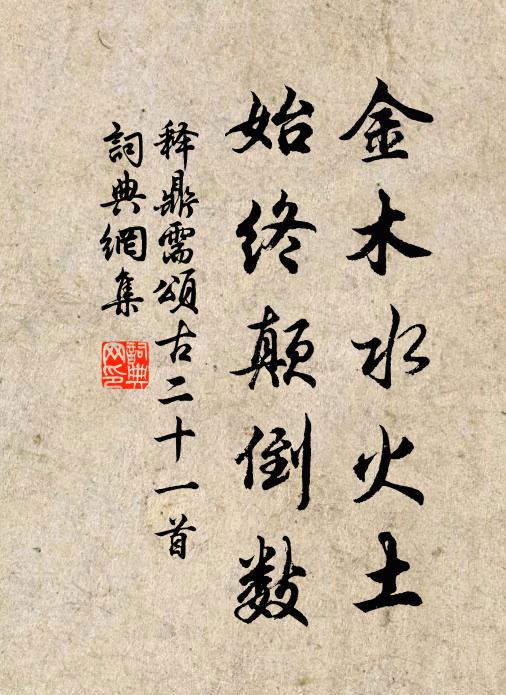 金木水火土
始终颠倒数
释鼎需颂古二十一首
詞典網集
詞典
网印